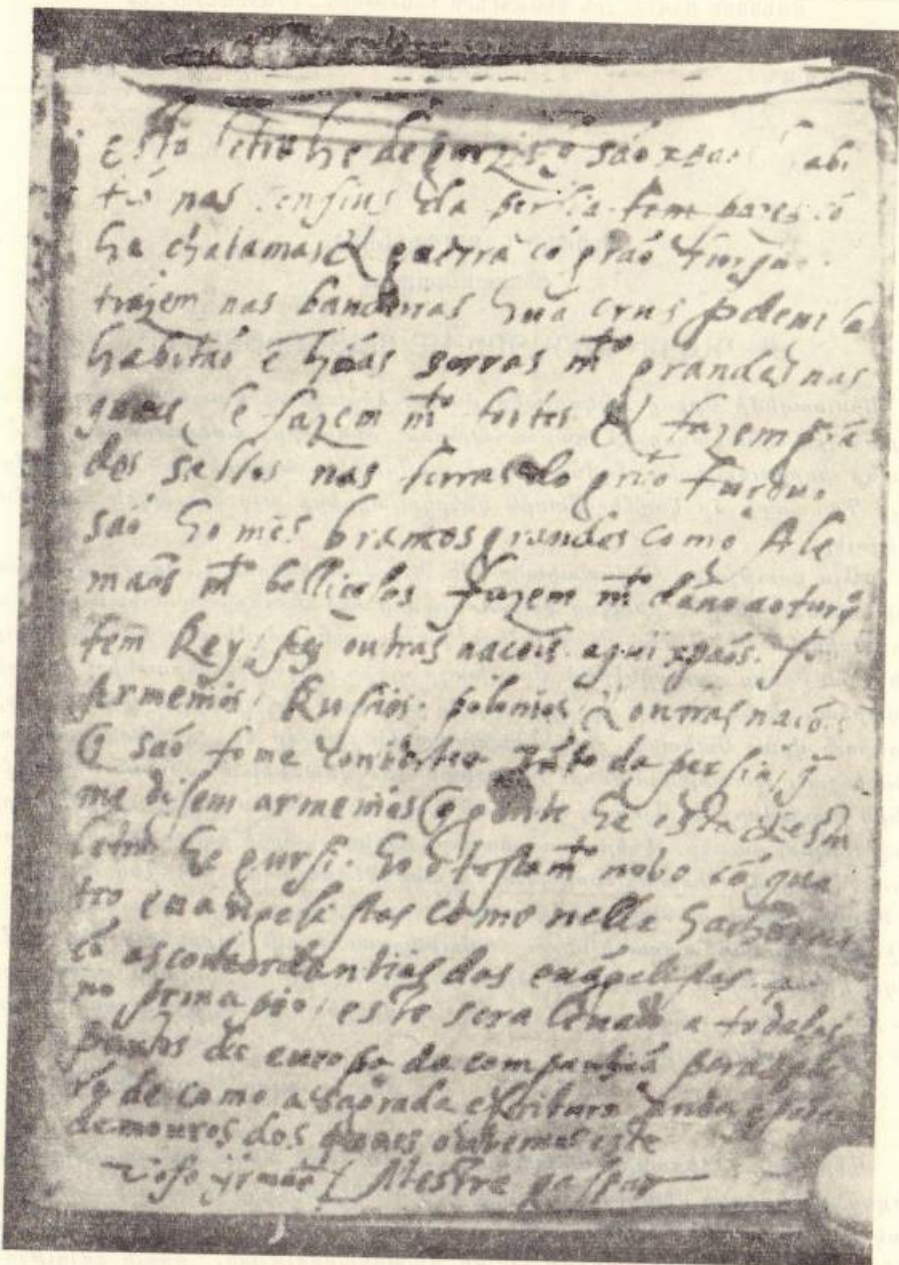 esta letra he de gurgis q̃ são xpãos habi
tã nas da persia. tem pazes cõ
ha chatamas & guerra cõ grão turquo.
trajem nas bandeiras hũa crus
habitão ẽ hũas serras mto grandes nas
quaes se fazem mto fortes & fazem grã
des saltos nas terras do grão turquo.
são homẽs bramcos grandes como Ale
mães mto bellicosos fazem mto dano ao turqo
tem Rey. outras nacõis aqui xpãos.
Armenios. Rusios. polonios & outras nacõis
q̃ são persia q̃
me disem armenios q̃ gente he esta & esta
letra he gursi. he o testamto nobo cõ qua
tro euangelistas como nelle
cõ as concordantias dos euãgelistas
no primcipio. este sera leuado a todalas
partes de europa da companhia pera
de como a sagrada escritura
de mouros dos quaes ouuemos este
voso yrmão / Mestre gaspar